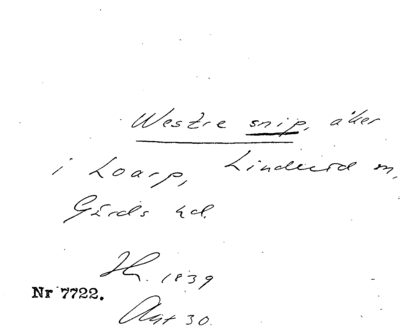 Westre snip, åker
i Loarp, Linderöd sn,
Gärds hd.
1839
Nr 7722.
Akt 30.